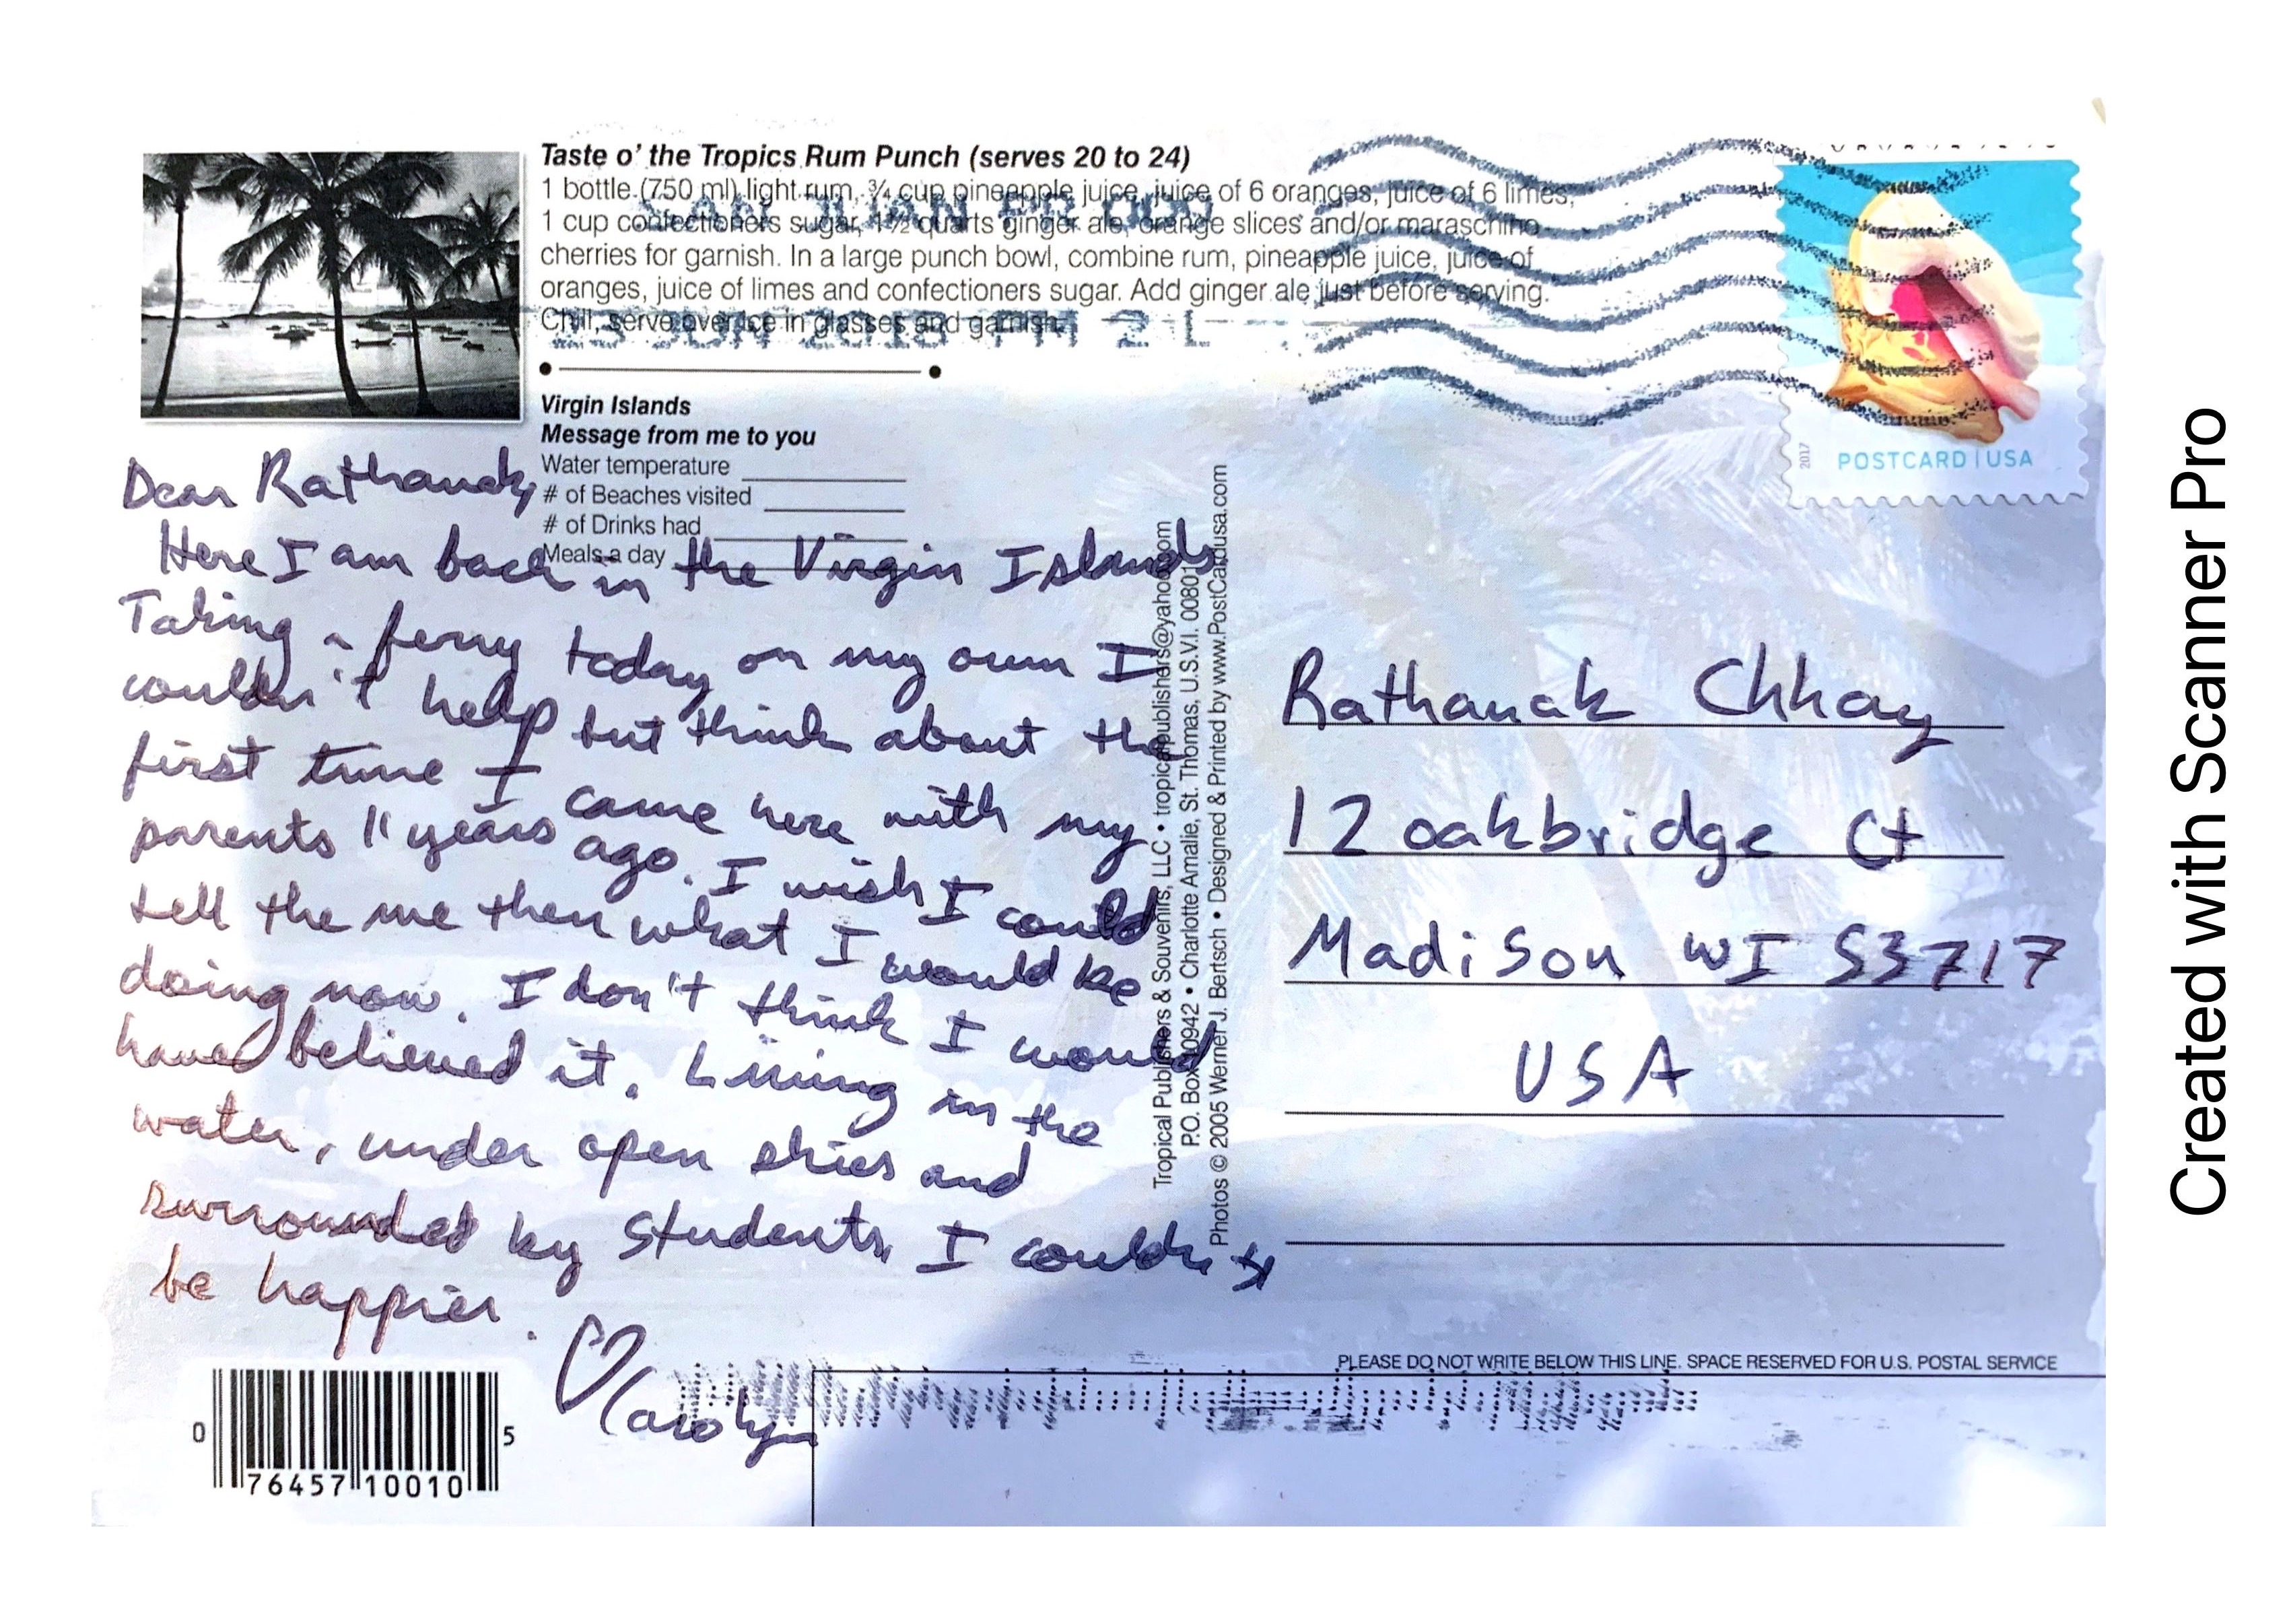 Taste o' the Tropics Rum Punch (serves 20 to 24)
1 bottle (750 ml) light rum, ¾ cup pineapple juice, juice of 6 oranges, juice of 6 limes,
1 cup confectioners sugar, 1½ quarts ginger ale, orange slices and/or maraschino
cherries for garnish. In a large punch bowl, combine rum, pineapple juice, juice of
oranges, juice of limes and confectioners sugar. Add ginger ale just before serving.
Chill, serve over ice in glasses and garnish.
SAN JUAN PR
JUN 2018 PM 2 L
Virgin Islands
Message from me to you
Water temperature
# of Beaches visited
# of Drinks had
Meals a day
Dear Rathanak,
Here I am back in the Virgin Islands
Taking a ferry today on my own I
couldn't help but think about the
first time I came here with my
parents 11 years ago. I wish I could
tell the me then what I would be
doing now. I don't think I would
have believed it. Living in the
water, under open skies and
surrounded by students, I couldn't
be happier.
♡ Carolyn
0 76457 10010 5
Tropical Publishers & Souvenirs, LLC • tropicalpublishers@yahoo.com
P.O. Box 10942 • Charlotte Amalie, St. Thomas, U.S.V.I. 00801
Photos © 2005 Werner J. Bertsch • Designed & Printed by www.PostCardusa.com
2017
POSTCARD | USA
Rathanak Chhay
12 oakbridge Ct
Madison WI 53717
USA
PLEASE DO NOT WRITE BELOW THIS LINE. SPACE RESERVED FOR U.S. POSTAL SERVICE
Created with Scanner Pro